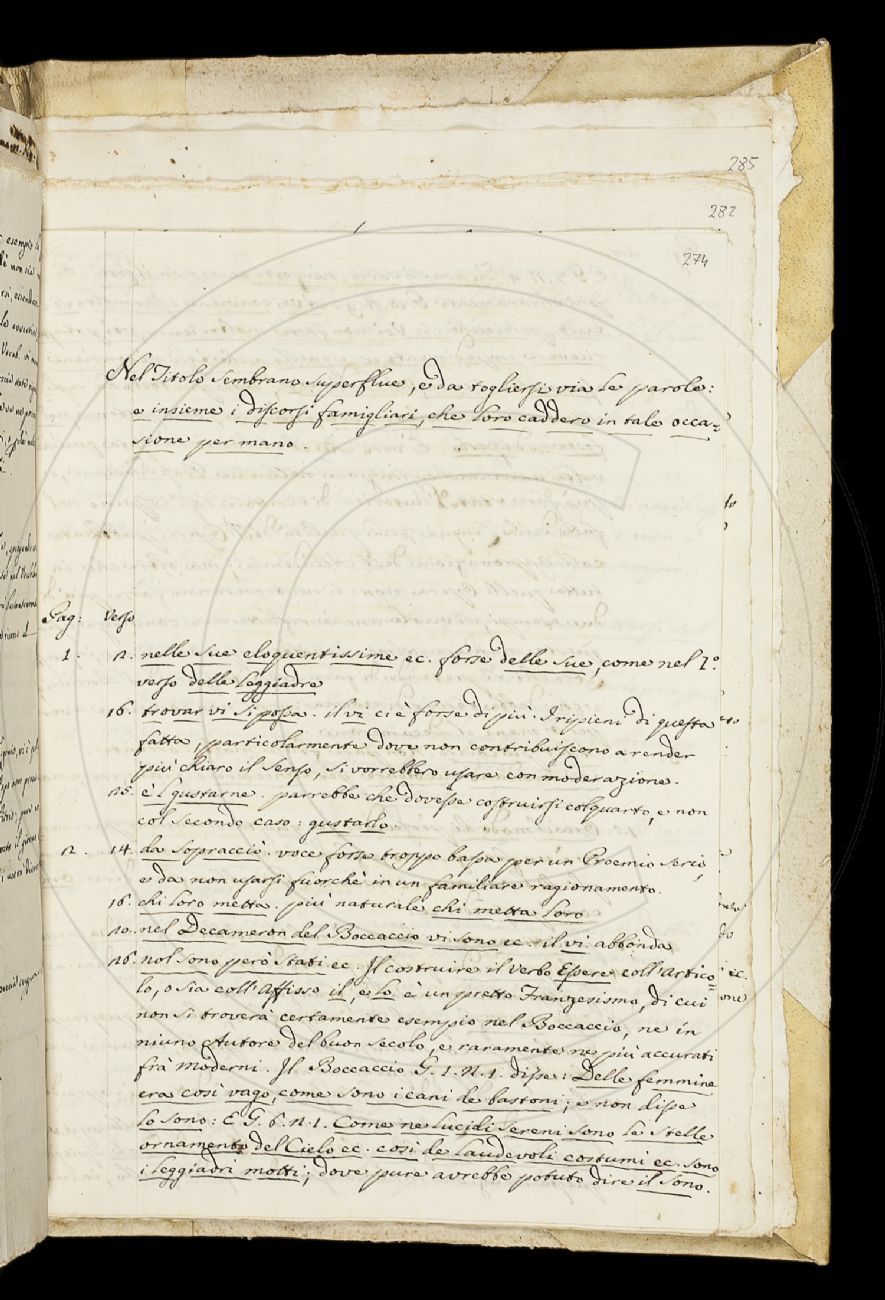 285
282
274
Nel Titolo sembrano superflue, e da togliersi via le parole:
e insieme i discorsi famigliari, che loro caddero in tale occa=
sione per mano.
Pag: Verso
1. 12. nelle sue eloquentissime ec. forse delle sue, come nel 1.º
verso delle leggiadre
16. trovar vi si possa. il vi ci è forse di più. I ripieni di questa
fatta, particolarmente dove non contribuiscono a render
più chiaro il senso, si vorrebbero usare con moderazione.
25. è l gustarne. parrebbe che dovesse costruirsi col quarto, e non
col secondo caso: gustarlo.
2. 14. da sopracciò. voce forse troppo bassa per un Proemio serio,
e da non usarsi fuorchè in un familiare ragionamento.
16. chi loro metta. più naturale chi metta loro
20. nel Decameron del Boccaccio vi sono ec. il vi abbonda
26. nol sono però stati ec. Il costruire il verbo Essere coll'artico=
lo, o sia coll'Affisso il, e lo è un pretto Franzesismo, di cui
non si troverà certamente esempio nel Boccaccio, ne in
niuno Autore del buon secolo, e raramente ne più accurati
frà moderni. Il Boccaccio G. 1. N. 1. disse: Delle femmine
era così vago, come sono i cani de bastoni; e non disse
lo sono: E G. 6. n. 1. Come ne lucidi sereni sono le stelle
ornamento del Cielo ec. così de laudevoli costumi ec. sono
i leggiadri motti; dove pure avrebbe potuto dire il sono.